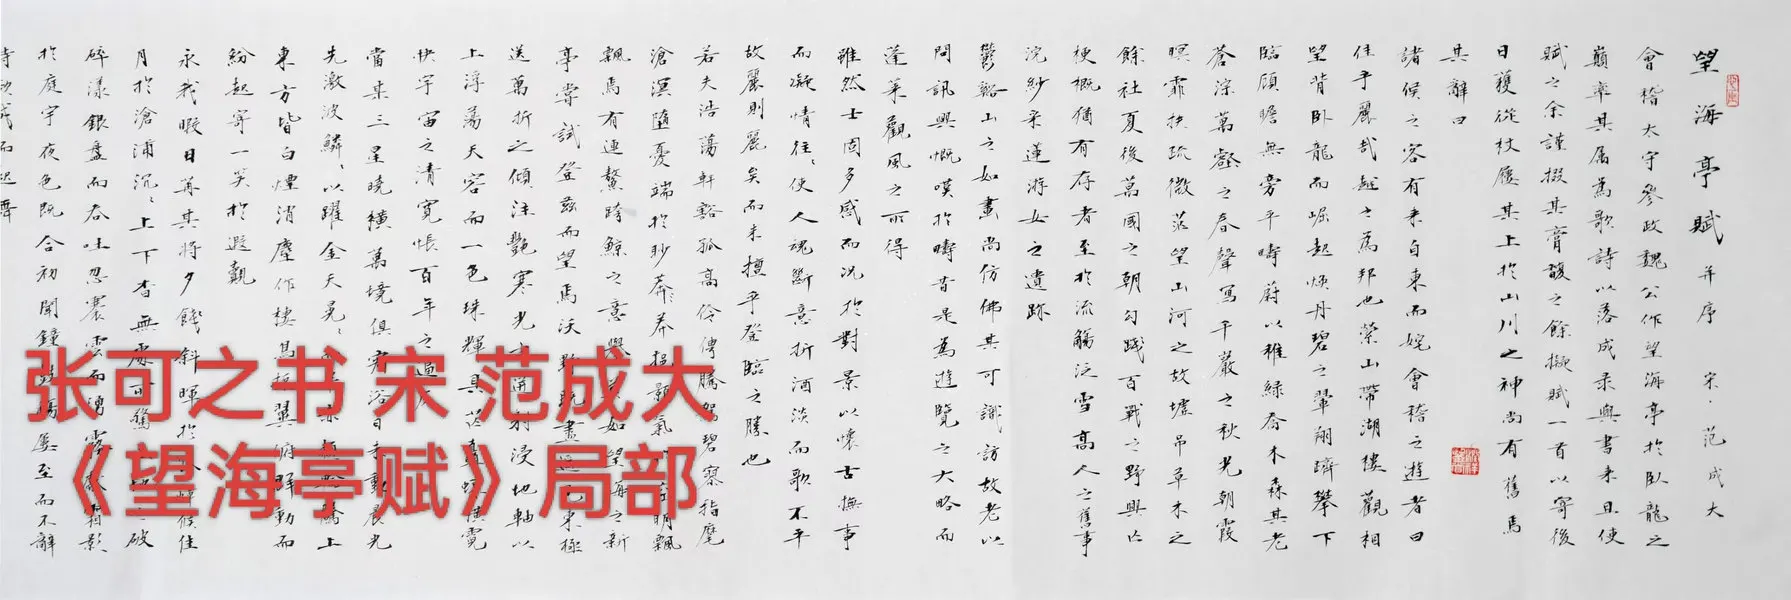 望海亭賦 并序 宋·范成大
會稽太守參政魏公作望海亭於臥龍之
巔率其属為歌詩以落成录與書来且使
賦之余謹掇其膏馥之餘擬賦一首以寄後
日獲從杖屨其上於山川之神尚有舊焉
其辭曰
諸侯之客有来自東而姹會稽之遊者曰
佳乎麗哉越之為邦也縈山帶湖樓觀相
望背卧龍而崛起焕丹碧之翬翔躋攀下
臨顧瞻無旁平疇蔚以稚綠喬木森其老
蒼淙萬壑之春聲写千巖之秋光朝霞
暝霏扶疏微茫望山河之故墟吊草木之
餘社夏後萬國之朝勾踐百戰之野興亡
梗概猶有存者至於流觴泛雪高人之舊事
浣紗采蓮游女之遺跡
鬱谿山之如畫尚仿佛其可識訪故老以
問訊興慨嘆於疇昔是為遊覽之大略而
蓬莱觀風之所得
雖然士固多感而况於對景以懷古撫事
而凝情往〻使人魂斷意折酒淡而歌不平
故麗則麗矣而未擅乎登臨之勝也
若夫浩蕩軒豁孤高伶俜騰駕碧寥指麾
滄溟隨憂端於眇莽莽挹顥氣 明飄
飄焉有連鰲跨鯨之意興 如望海之新
亭嘗試登兹而望焉沃野既盡 東極
送萬折之傾注艷寒光 浸地軸以
上浮蕩天容而一色珠輝具 霓
快宇宙之清寬悵百年之
當某三星曉橫萬境俱寂浴日未動晨光
先激波鱗〻以躍金天晃〻 上
東方皆白煙消塵作樓 翼俯 動而
紛起寄一笑於遐觀
永我暇日苒其将夕餞斜暉於 候佳
月於滄浦沉〻上下杳無處 破
碎漾銀盤而吞吐忽褰雲而湧 霜影
於庭宇夜色既合初聞鐘鼓 屢至而不辭
詩欲成而起舞
张可之书 宋 范成大
《望海亭赋》局部